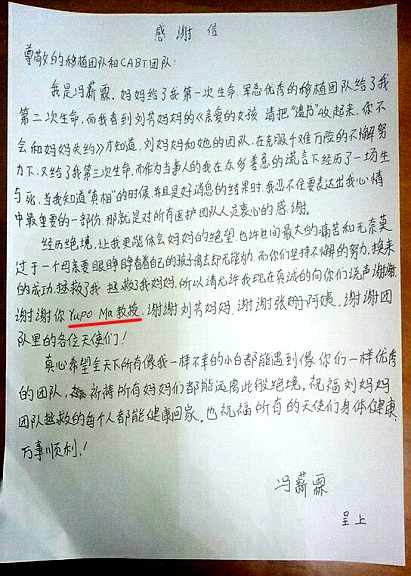 感谢信
尊敬的移植团队和CABT团队:
我是冯薪霖,妈妈给了我第一次生命,军总优秀的移植团队给了我
第二次生命,而我看到刘芳妈妈的《亲爱的女孩 请把“遗书”收起来,你不
会和妈妈失约》才知道,刘妈妈和她的团队,在克服千难万险的不懈努
力下,又给了我第三次生命,而作为当事人的我在众多善意的谎言下经历了一场生
与死,当我知道“真相”的时候,并且是好消息的结果时,我忍不住要表达出我心情
中最重要的一部份,那就是对所有医护团队人员衷心的感谢。
经历绝境,让我更能体会妈妈的绝望,也许世间最大的痛苦和无奈莫
过于一个母亲要眼睁睁看着自己的孩子离去却无能力,而你们坚持不懈的努力,换来
的成功,拯救了我,拯救了我妈妈,所以请允许我现在真诚的向你们说声谢谢
谢谢你Yupo Ma教授,谢谢刘芳妈妈,谢谢张珊阿姨,谢谢团
队里的各位天使们!
真心希望全天下所有像我一样不幸的小白都能遇到像你们一样优秀
的团队,祈祷所有妈妈们都能远离此般绝境,祝福刘妈妈
团队拯救的每个人都能健康回家,也祝福所有的天使们身体健康,
万事顺利!
冯薪霖
呈上